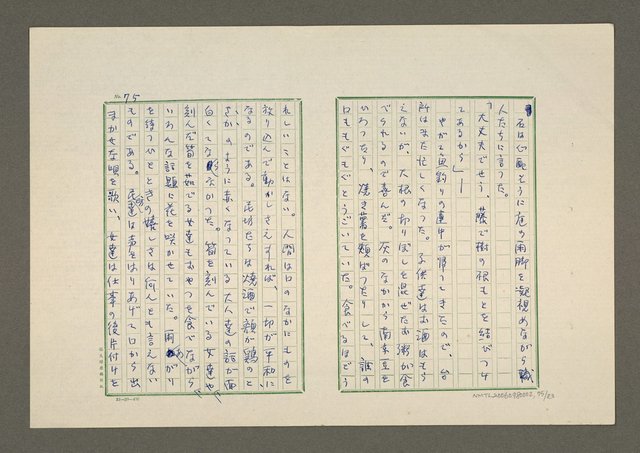 石は心配さうに庭の雨脚を凝視めながら職
人たちに言った。
「大丈夫でせう、藤で樹の根もとを結びつけ
てあるから」―
やがて魚釣りの連中が帰ってきたので、台
所はまた忙しくなった。子供達はお酒はもら
えないが、大根の切りぼしを混ぜたお粥が食
べられるので喜んだ。灰のなかから南京豆を
ひろったり、焼き薯を頬ばったりして、誰の
口ももぐもぐとうごいていた。食べるほどう
れしいことはない。人間は口のなかにものを
放り込んで動かしさえすれば、一切が平和に
なるのである。 たちは焼酒で頬が鶏のと
さかのように赤くなっている大人達の話が面
白くてな かった。筍を刻んでいる女達や、
刻んだ筍を茹でる女達もおやつを食べながら
いろんな話題に花を咲かせていた。雨あがり
を待つひとときの嬉しさは何んとも言えない
ものである。 達は声をはりあげて口から出
まかせな唄を歌い、女達は仕事の後片付けを
No. 75
NMTL20060980002, 75/83